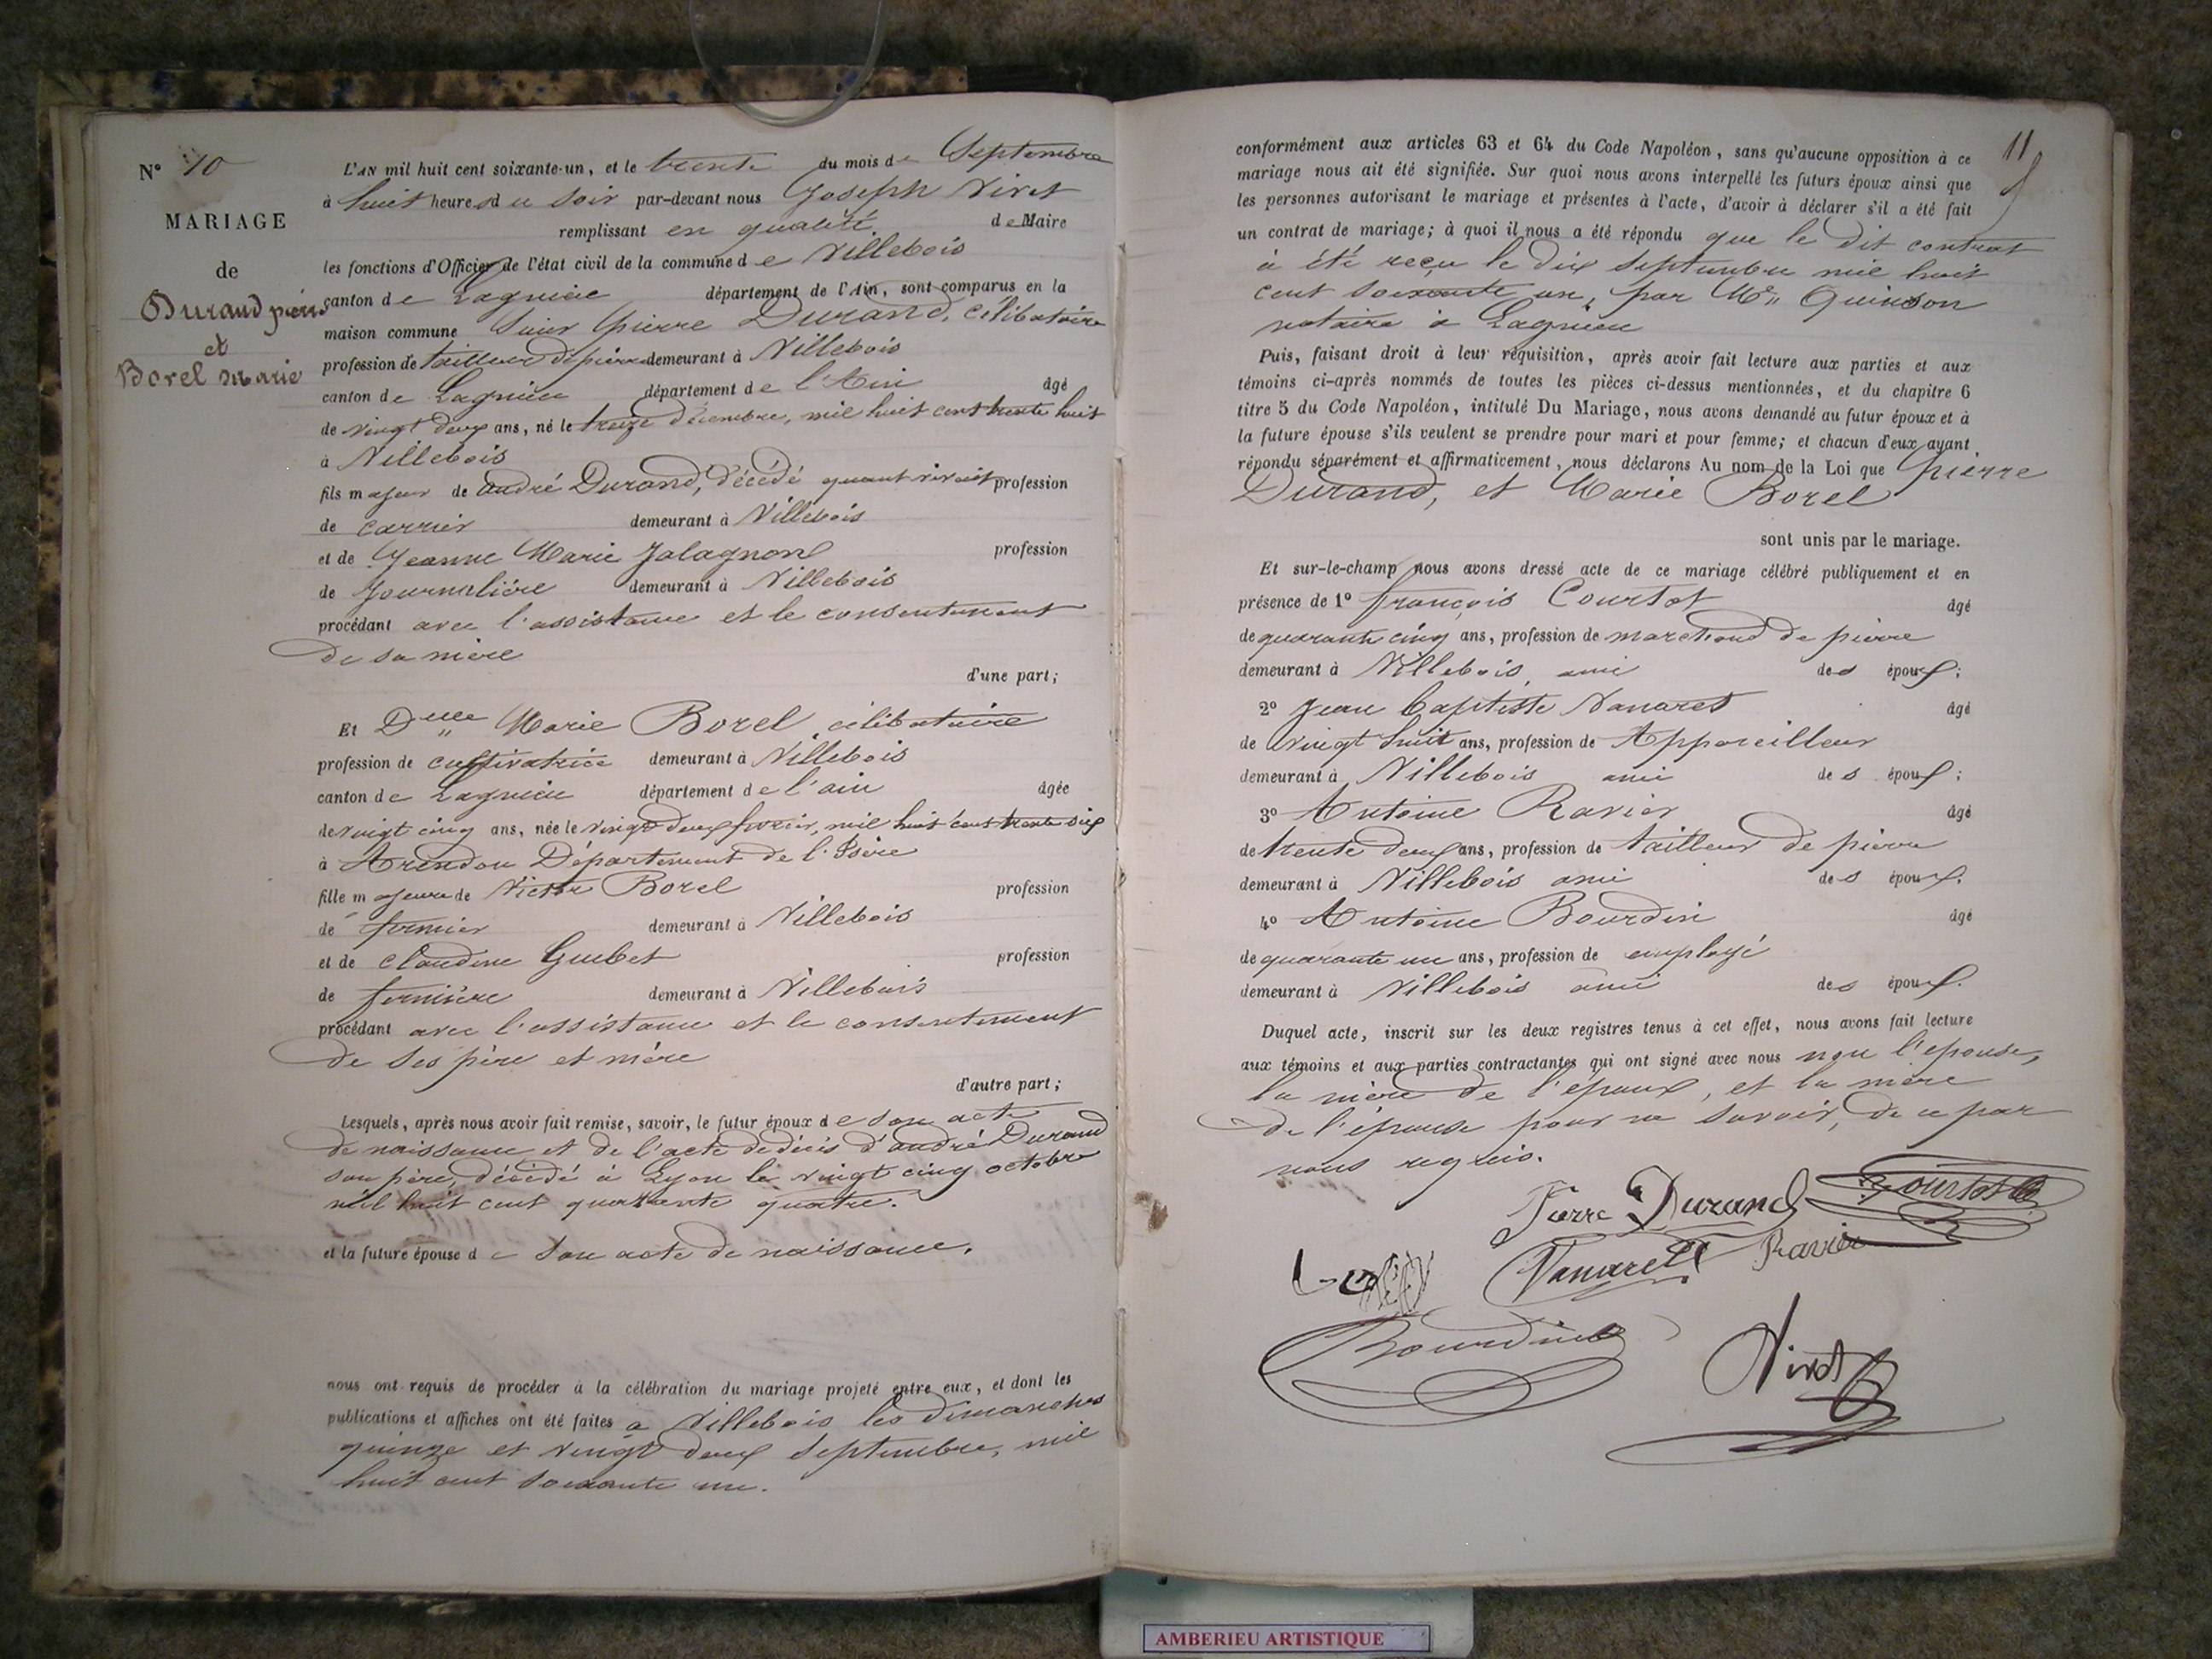 N° 10
MARIAGE
de
Durand pierre
et
Borel Marie
L'AN mil huit cent soixante-un, et le trente du mois de Septembre
à huit heures du soir par-devant nous Joseph Vivet
remplissant en qualité de Maire
les fonctions d'Officier de l'état civil de la commune de Villebois
canton de Lagnieu département de l'Ain, sont comparus en la
maison commune Sieur Pierre Durand, célibataire
profession de tailleur de pierre demeurant à Villebois
canton de Lagnieu département de l'Ain âgé
de vingt deux ans, né le treize Décembre, mil huit cent trente huit
à Villebois
fils majeur de andré Durand, décédé quant vivait profession
de carrier demeurant à Villebois
et de Jeanne Marie Jalagnon profession
de Journalière demeurant à Villebois
procédant avec l'assistance et le consentement
de sa mère
d'une part;
Et Dlle Marie Borel célibataire
profession de cultivatrice demeurant à Villebois
canton de Lagnieu département de l'ain âgée
de vingt cinq ans, née le vingt deux fevrier, mil huit cent trente six
à Arandon Département de l'Isère
fille majeure de Victor Borel profession
de fermier demeurant à Villebois
et de Claudine Guebet profession
de fermière demeurant à Villebois
procédant avec l'assistance et le consentement
de ses père et mère
d'autre part;
Lesquels, après nous avoir fait remise, savoir, le futur époux de son acte
de naissance et de l'acte de décès d'andré Durand
son père, décédé à Lyon le vingt cinq octobre
mil huit cent quarante quatre.
et la future épouse de son acte de naissance.
nous ont requis de procéder à la célébration du mariage projeté entre eux, et dont les
publications et affiches ont été faites a Villebois les dimanches
quinze et vingt deux Septembre, mil
huit cent soixante un.
11
conformément aux articles 63 et 64 du Code Napoléon, sans qu'aucune opposition à ce
mariage nous ait été signifiée. Sur quoi nous avons interpellé les futurs époux ainsi que
les personnes autorisant le mariage et présentes à l'acte, d'avoir à déclarer s'il a été fait
un contrat de mariage; à quoi il nous a été répondu que le dit contrat
à été reçu le dix septembre mil huit
cent soixante un, par Me Quinson
notaire à Lagnieu
Puis, faisant droit à leur réquisition, après avoir fait lecture aux parties et aux
témoins ci-après nommés de toutes les pièces ci-dessus mentionnées, et du chapitre 6
titre 5 du Code Napoléon, intitulé Du Mariage, nous avons demandé au futur époux et à
la future épouse s'ils veulent se prendre pour mari et pour femme; et chacun d'eux ayant
répondu séparément et affirmativement, nous déclarons Au nom de la Loi que Pierre
Durand, et Marie Borel
sont unis par le mariage.
Et sur-le-champ nous avons dressé acte de ce mariage célébré publiquement et en
présence de 1° François Courtot âgé
de quarante cinq ans, profession de marchand de pierre
demeurant à Villebois, ami des époux;
2° Jean Baptiste Vanaret âgé
de vingt huit ans, profession de Appareilleur
demeurant à Villebois ami des époux;
3° Antoine Ravier âgé
de trente deux ans, profession de tailleur de pierre
demeurant à Villebois ami des époux.
4° Antoine Bourdin âgé
de quarante un ans, profession de employé
demeurant à Villebois ami des époux.
Duquel acte, inscrit sur les deux registres tenus à cet effet, nous avons fait lecture
aux témoins et aux parties contractantes qui ont signé avec nous non l'epouse,
la mère de l'époux, et la mère
de l'épouse pour ne savoir, de ce par
nous requis.
Pierre Durand Courtot
Vanaret Ravier
Bourdin
Vivet
AMBERIEU ARTISTIQUE